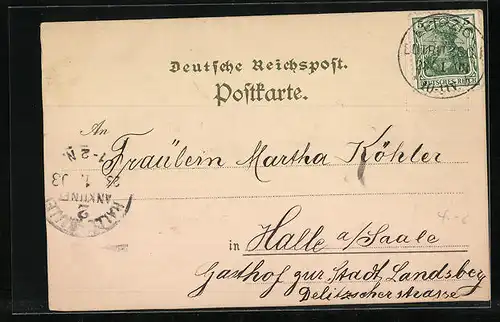 5
DEUTSCHES REICH
Deutsche Reichspost.
Postkarte.
An
Fräulein Martha Köhler
1-2 N
1. 03
ANKUNFT
2
HALLE
in Halle a/Saale
Gasthof zur Stadt Landsberg
Delitzscherstrasse